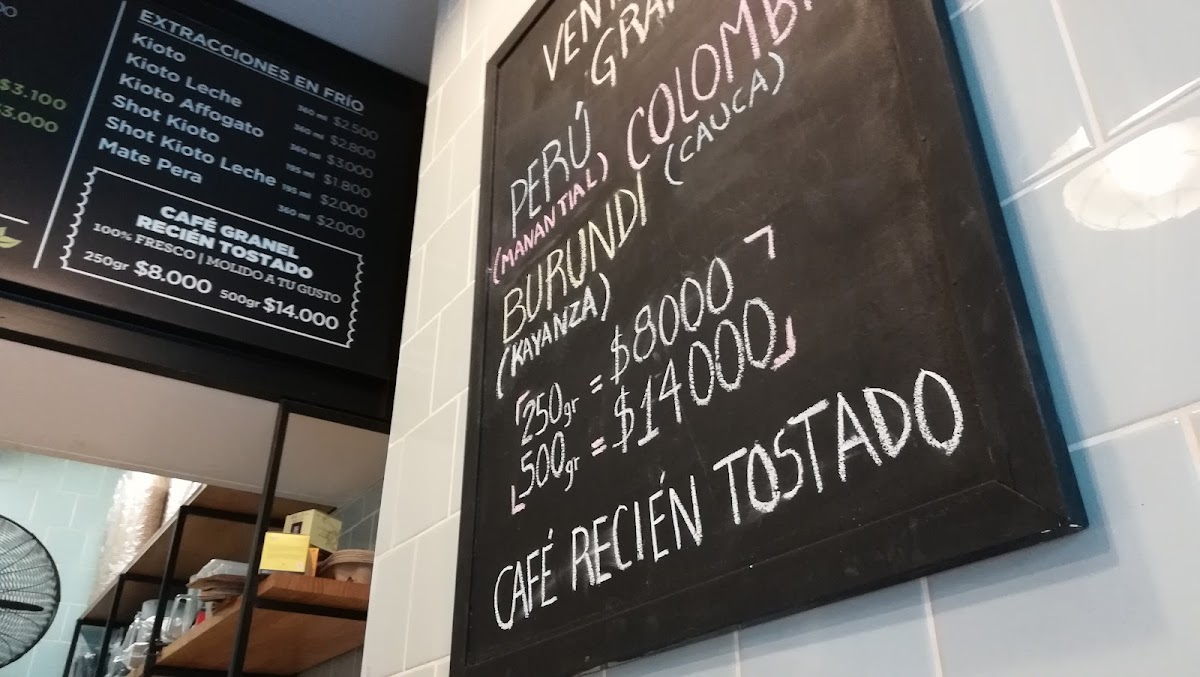 $3.100
$3.000
EXTRACCIONES EN FRÍO
Kioto 360 ml $2.500
Kioto Leche 360 ml $2.800
Kioto Affogato 360 ml $3.000
Shot Kioto 195 ml $1.800
Shot Kioto Leche 195 ml $2.000
Mate Pera 360 ml $2.000
CAFÉ GRANEL
RECIÉN TOSTADO
100% FRESCO | MOLIDO A TU GUSTO
250gr $8.000 500gr $14.000
PERÚ
(MANANTIAL)
COLOMB
(CAUCA)
BURUNDI
(KAYANZA)
250gr = $8000
500gr = $14000
CAFÉ RECIÉN TOSTADO